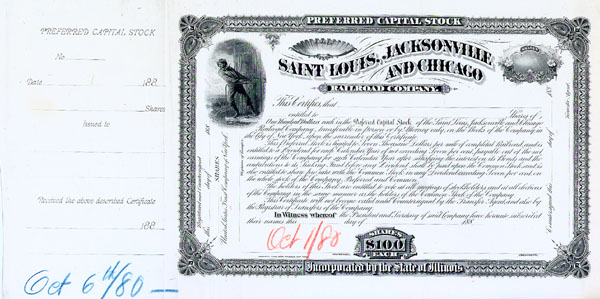 PREFERRED CAPITAL STOCK
No
Date 188
Shares
Issued to
Received the above described Certificate
188
Oct 6th/80 —
PREFERRED CAPITAL STOCK
SAINT LOUIS, JACKSONVILLE
AND CHICAGO
RAILROAD COMPANY
This Certifies, that
entitled to Shares of
One Hundred Dollars each in the Preferred Capital Stock of the Saint Louis, Jacksonville and Chicago
Railroad Company, transferable in person or by Attorney only, on the Books of the Company in
the City of New York, upon the surrender of this Certificate.
This Preferred Stock is limited to Seven Thousand Dollars per mile of completed Railroad and is
entitled to a Dividend for each Calendar Year of not exceeding Seven per cent from the
earnings of the Company for such Calendar Year after satisfying the interest on its Bonds and the
contributions to its Sinking Fund before any Dividend shall be paid upon the Common Stock, and is
also entitled to share pro rata with the Common Stock in any Dividend exceeding Seven per cent on
the whole stock of the Company, Preferred and Common.
The holders of this Stock are entitled to vote at all meetings of stockholders and at all elections
of the Company in the same manner as the holders of the Common Stock.
This Certificate will not become valid until Countersigned by the Transfer Agent and also by
the Registrar of Transfers of the Company.
In Witness whereof the President and Secretary of said Company have hereunto subscribed
their names this day of 188
Oct 1/80
SHARES
$100
EACH
Incorporated by the State of Illinois
SHARES
188
day of
the
United States Trust Company of New York
Countersigned this
day of
188
Transfer Agent